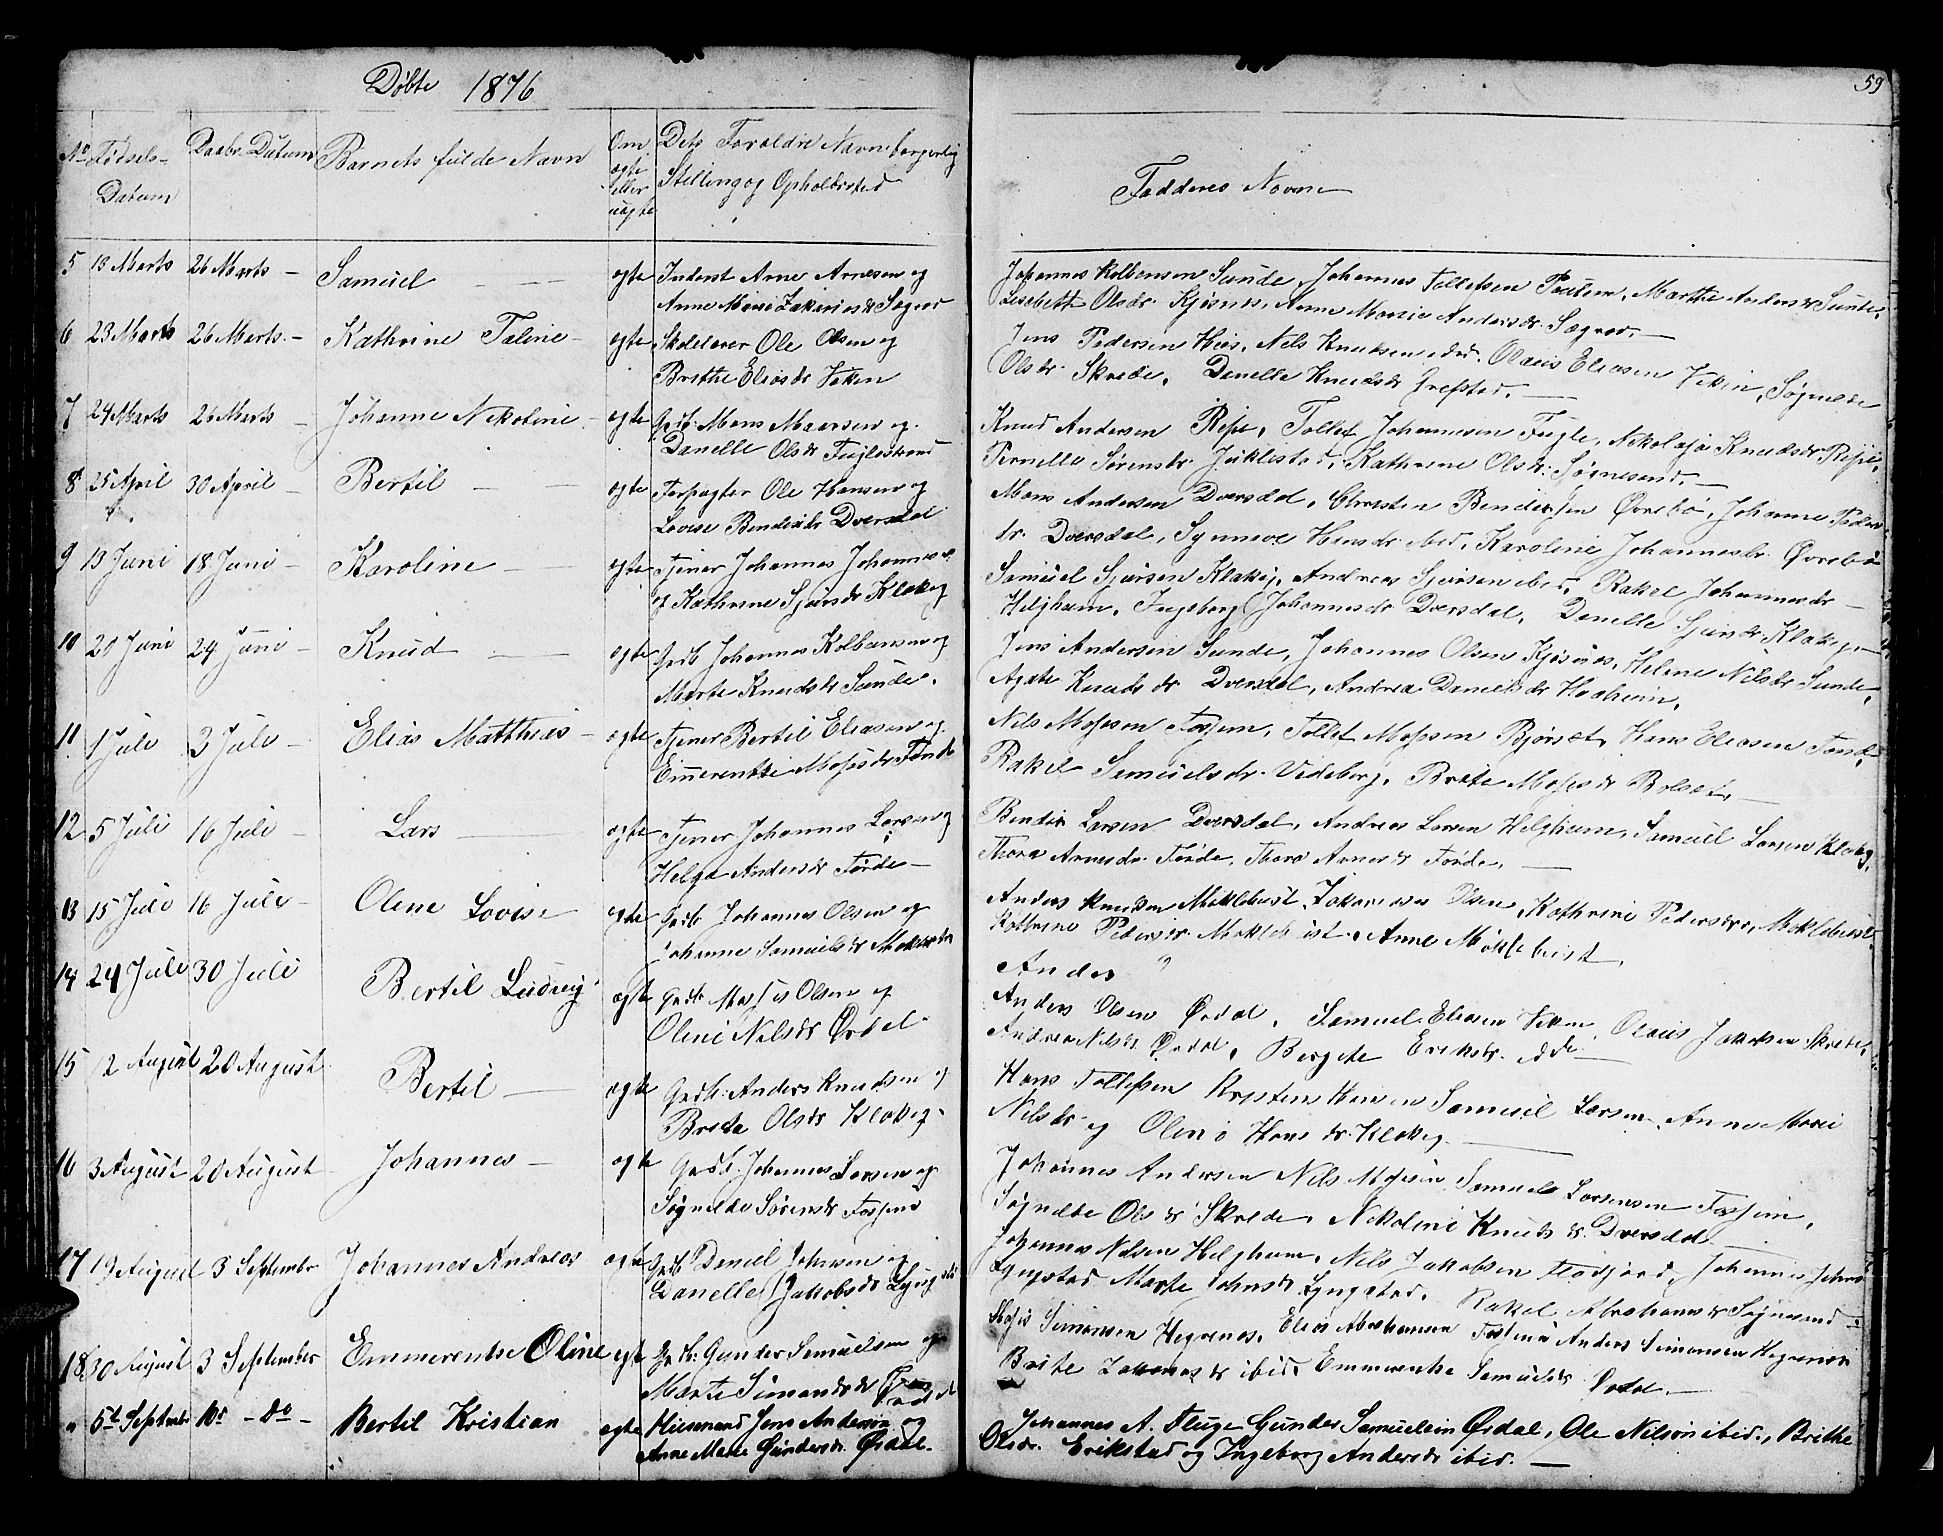 Døbte 1876
59
No Fødsels- Datum
Daabs Datum
Barnets fulde Navn
Om ægte eller uægte
Dets Forældre Navn borgerlig
Stilling og Opholdssted
Faddernes Navne
5 13 Marts 26 Marts - Samuel - ægte Inderst Arne Arnesen og
Anne Marie Zakariasdr Søgnes
Johannes Kolbensen Sunde, Johannes Tollefsen, Marthe Andersdr Sunde,
Lisebett Olsdr. Kjøsnes, Anne Marie Andersdr.
6 23 Marts 26 Marts - Kathrine Taline - ægte Skolelærer Ole Olsen og
Brithe Eliasdr Viken
Jens Pedersen Hus, Nels Knudsen, Olaus Eliasen Viken, Søgnelde
Olsdr. Skrede, Danelle Knudsdr
7 24 Marts 26 Marts - Johanne Nekoline - ægte Grdb. Mons Monsen og
Danelle Olsdr Fuglestrand
Knud Andersen Ripe, Tollef Johannesen Fugle, Nekolaja Knudsdr. Ripe,
Pernelle Sørensdr. Juklestad, Kathrine Olsdr. Søgnesand.
8 25 April 30 April - Bertil - ægte Forpagter Ole Hansen og
Lovise Bendixdr Dversdal
Mons Andersen Dversdal, Christen Bendixsen Øvrebø, Johanne Peders
dr. Dversdal, Synneve Hansdr. ibid, Karoline Johannesdr. Øvrebø
9 13 Juni 18 Juni - Karoline - ægte Tjener Johannes Johannesen
og Kathrine Sjursdr Klakeg
Samuel Sjursen Klakeg, Andreas Sjursen ibid, Rakel Johannesdr -
Helgheim, Ingeborg Johannesdr Dversdal, Danelle Sjursdr. Klakeg.
10 20 Juni 24 Juni - Knud - ægte Grdb Johannes Kolbensen og
Marte Knudsdr Sunde.
Jens Andersen Sunde, Johannes Olsen Kjøsnes, Helene Nilsdr Sunde,
Agate Knudsdr Dversdal, Andrea Danielsdr
11 1 Juli 2 Juli - Elias Matthias - ægte Tjener Bertil Eliasen og
Emmerentse Mosesdr
Nils Mossesen Fossem, Tollef Mossesen Bjørset, Hans Eliasen
Rakel Samuelsdr. Videborg, Brite Mosesdr Bolset.
12 5 Juli 16 Juli - Lars - ægte Tjener Johannes Larsen og
Helga Andersdr Førde -
Bendix Larsen Dversdal, Andreas Larsen Helgheim, Samuel Larsen Klakeg,
Thora Arnesdr. Førde, Thora Arnesdr Førde.
13 15 Juli 16 Juli - Olene Lovise ægte Grdb Johannes Olsen og
Johanne Samuelsdr
Anders Knudsen Møklebust, Zakarias Olsen, Kathrine Pedersdr, Møklebust
Kathrine Pedersdr. Møklebust, Anne Møklebust,
14 24 Juli 30 Juli Bertil Ludvig ægte Grdb Moses Olsen og
Oline Nelsdr Ørdal
Anders
Anders Olsen Ørdal, Samuel Eliasen Viken, Olaus Jakobsen Skrede,
Andrea Nelsdr Ørdal, Bergete Eriksdr.
15 2 August 20 August Bertil - ægte Grdb. Anders Knudsen og
Breta Olsdr Klakeg
Hans Tollefsen Kristen Hansen Samuel Larsen, Anne Marie
Nelsdr. og Oline Hansdr. Klakeg
16 3 August 20 August Johannes - ægte Grdb. Johannes Larsen og
Søgnelde Sørensdr
Johannes Andersen Nils Mosesen Samuel Larsensen,
Søgnelde Olsdr Skrede, Nekoline Knudsdr. Dversdal
17 19 August 3 September Johannes Andreas ægte Grdb Daniel Johnsen og
Danelle Jakobsdr Lyngstad
Johannes Nilsen Helgheim, Nils Jakobsen, Johannes
Lyngstad Marte Johnsdr Lyngstad, Rakel Abrahamsdr Søgnesand -
18 30 August 3 September Emmerentse Oline ægte Grdb: Gunder Samuelsen og
Marte Simonsdr Ørdal
Moses Simonsen Hegrenes, Elias Abrahamsen, Anders Simonsen Hegrenes
Brite Zakariasdr ibid, Emmerentse Samuelsdr Ørdal.
" 5t September 10 - do - Bertil Kristian ægte Huusmand Jens Andersen og
Anne Marte Gundersdr. Ørdal.
Johannes A. Fluge Gunder Samuelsen Ørdal, Ole Nilson ibid., Brithe
Olsdr. Erikstad og Ingeborg Andersdr ibid. -